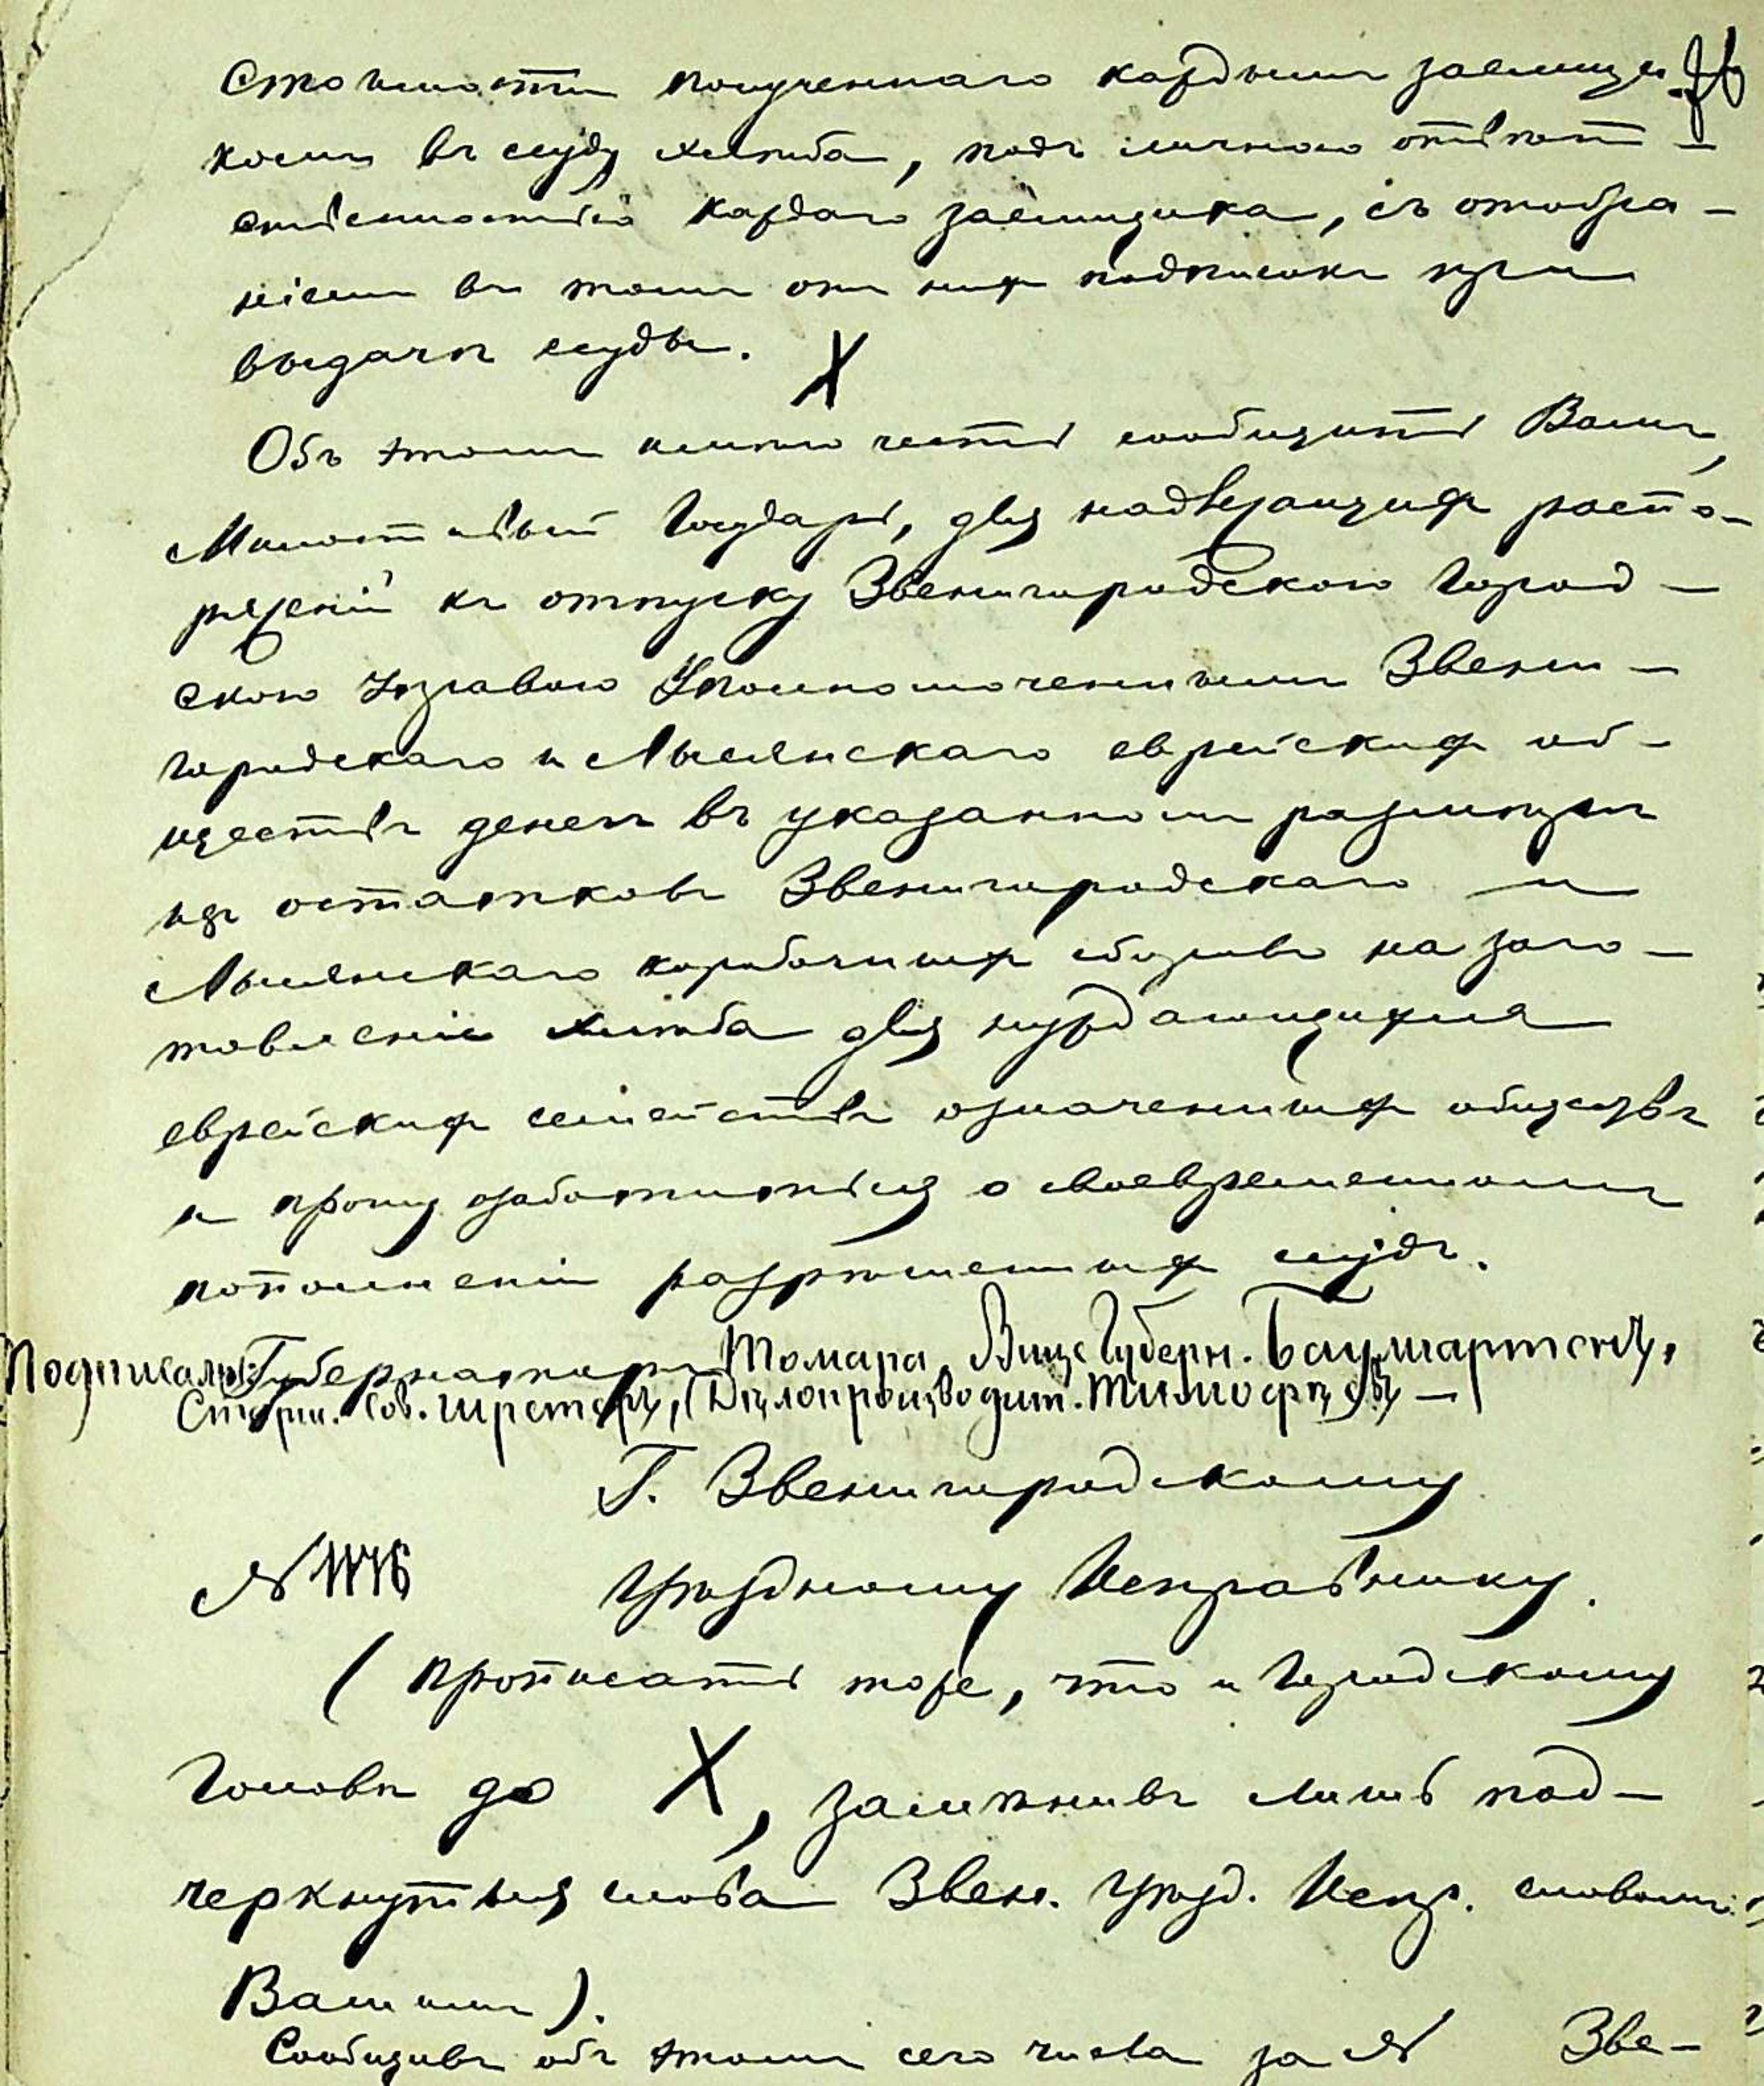 стоимости полученнаго каждымъ заемщи-
комъ въ ссуду хлѣба, подъ личною отвѣт-
ственностью каждаго заемщика, съ отобра-
ніемъ въ томъ отъ нихъ подписокъ при
выдачѣ ссуды. X
Объ этомъ имѣю честь сообщить Вамъ,
Милостивый Государь, для надлежащихъ распо-
ряженій къ отпуску Звенигородскою Город-
скою Управою Уполномоченнымъ Звени-
городскаго и Лысянскаго еврейскихъ об-
ществъ денегъ въ указанномъ размѣрѣ
изъ остатковъ Звенигородскаго и
Лысянскаго коробочныхъ сборовъ на заго-
товленіе хлѣба для нуждающихся
еврейскихъ семействъ означенныхъ обществъ
и прошу озаботиться о своевременномъ
пополненіи разрѣшенныхъ ссудъ.
Подписали: Губернаторъ Томара, Вице Губерн. Баумгартенъ,
Старш. Сов. Шретеръ, Дѣлопроизводит. Тимофѣевъ —
Г. Звенигородскому
№ Уѣздному Исправнику.
(прописать тоже, что и Городскому
Головѣ до X, замѣнивъ лишь под-
черкнутыя слова Звен. Уѣзд. Испр. словомъ:
Вашимъ).
Сообщивъ объ этомъ сего числа за № Зве-